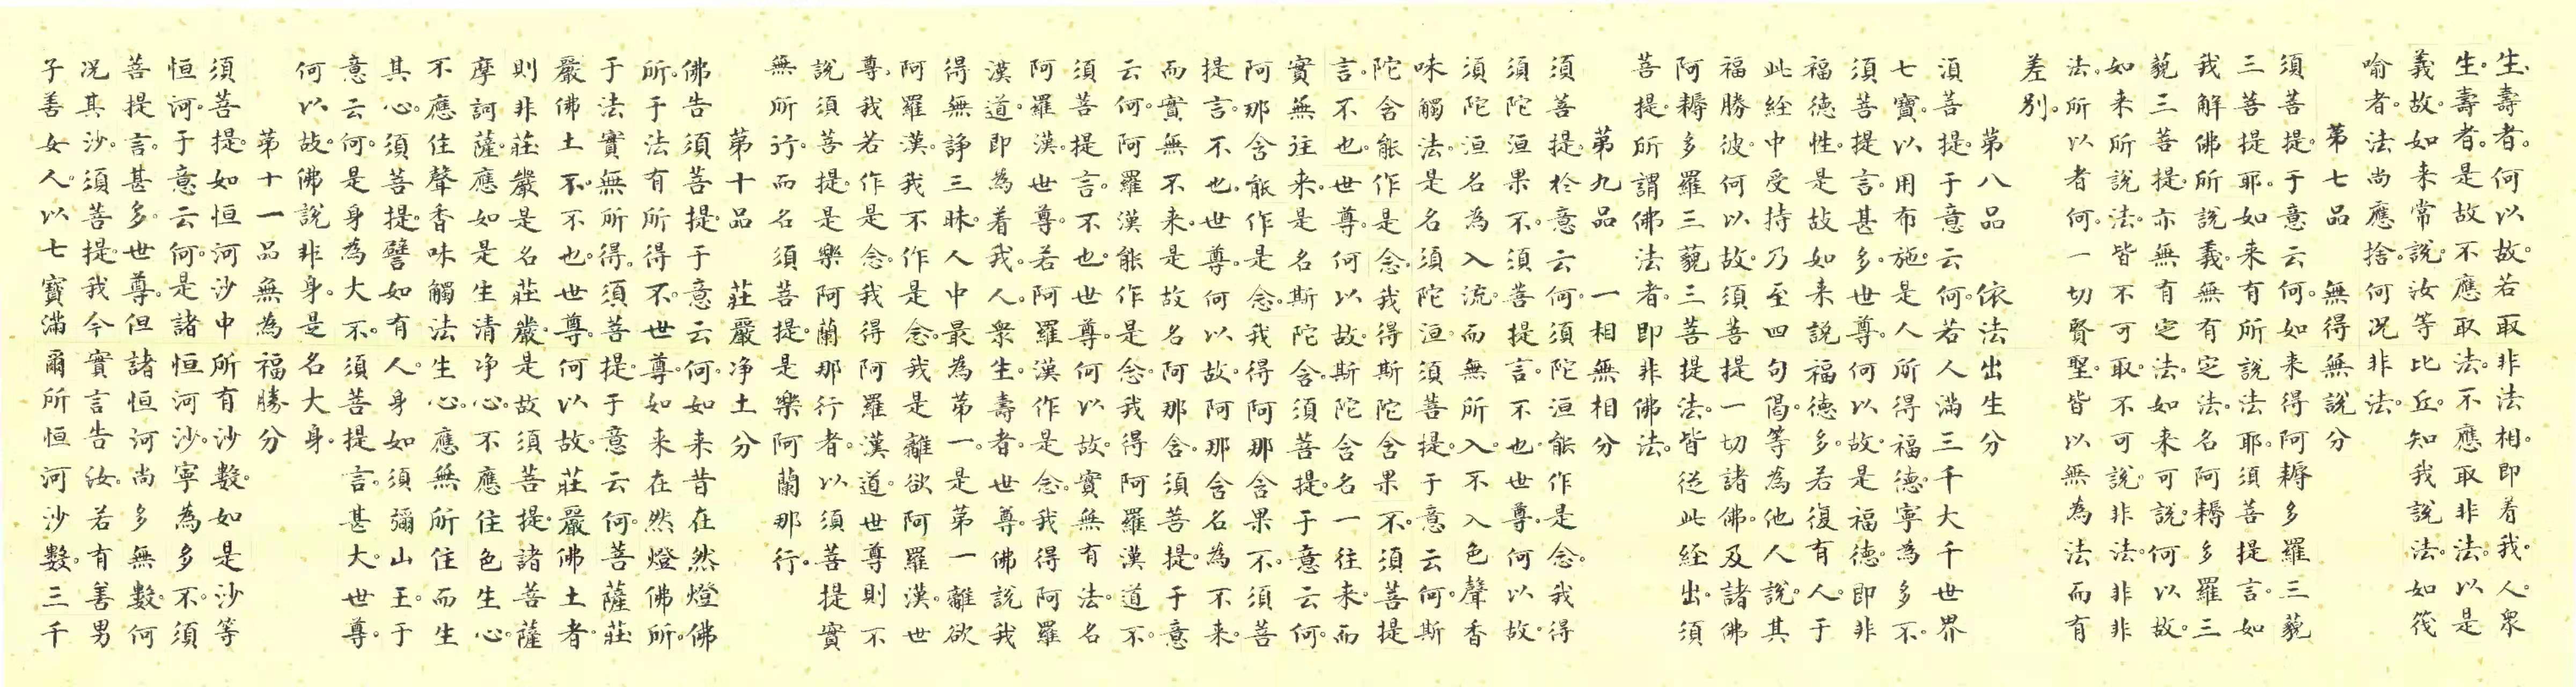 生、壽者。何以故。若取非法相。即着我。人。眾
生。壽者。是故不應取法。不應取非法。以是
義故。如来常說。汝等比丘。知我說法。如筏
喻者。法尚應捨。何况非法。
第七品 無得無說分
須菩提。于意云何。如来得阿耨多羅三藐
三菩提耶。如来有所說法耶。須菩提言。如
我解佛所說義。無有定法。名阿耨多羅三
藐三菩提。亦無有定法。如来可說。何以故。
如来所說法。皆不可取。不可說。非法。非非
法。所以者何。一切賢聖。皆以無為法而有
差別。
第八品 依法出生分
須菩提。于意云何。若人滿三千大千世界
七寶。以用布施。是人所得福德。寧為多不。
須菩提言。甚多。世尊。何以故。是福德。即非
福德性。是故如来說福德多。若復有人。于
此経中受持乃至四句偈。等為他人說。其
福勝彼。何以故。須菩提一切諸佛。及諸佛
阿耨多羅三藐三菩提法。皆從此経出。須
菩提。所謂佛法者。即非佛法。
第九品 一相無相分
須菩提。於意云何。須陀洹能作是念。我得
須陀洹果不。須菩提言。不也世尊。何以故。
須陀洹名為入流。而無所入。不入色聲香
味觸法。是名須陀洹。須菩提。于意云何。斯
陀含能作是念。我得斯陀含果不。須菩提
言。不也。世尊。何以故。斯陀含名一往来。而
實無往来。是名斯陀含。須菩提。于意云何。
阿那含能作是念。我得阿那含果不。須菩
提言。不也。世尊。何以故。阿那含名為不来。
而實無不来。是故名阿那含。須菩提。于意
云何。阿羅漢能作是念。我得阿羅漢道不。
須菩提言。不也。世尊。何以故。實無有法。名
阿羅漢。世尊。若阿羅漢作是念。我得阿羅
漢道。即為着我。人。衆生。壽者。世尊。佛說我
得無諍三昧。人中最為第一。是第一離欲
阿羅漢。我不作是念。我是離欲阿羅漢。世
尊。我若作是念。我得阿羅漢道。世尊則不
說須菩提。是樂阿蘭那行者。以須菩提實
無所行。而名須菩提。是樂阿蘭那行。
第十品 莊嚴净土分
佛告須菩提。于意云何。如来昔在然燈佛
所。于法有所得不。世尊。如来在然燈佛所。
于法實無所得。須菩提。于意云何。菩薩莊
嚴佛土不。不也。世尊。何以故。莊嚴佛土者。
則非莊嚴。是名莊嚴。是故須菩提。諸菩薩
摩訶薩。應如是生清净心。不應住色生心。
不應住聲香味觸法生心。應無所住而生
其心。須菩提。譬如有人。身如須彌山王。于
意云何。是身為大不。須菩提言。甚大。世尊。
何以故。佛說非身。是名大身。
第十一品 無為福勝分
須菩提。如恒河沙中所有沙數。如是沙等
恒河。于意云何。是諸恒河沙。寧為多不。須
菩提言。甚多。世尊。但諸恒河尚多無數。何
况其沙。須菩提。我今實言告汝。若有善男
子善女人。以七寶滿爾所恒河沙數。三千